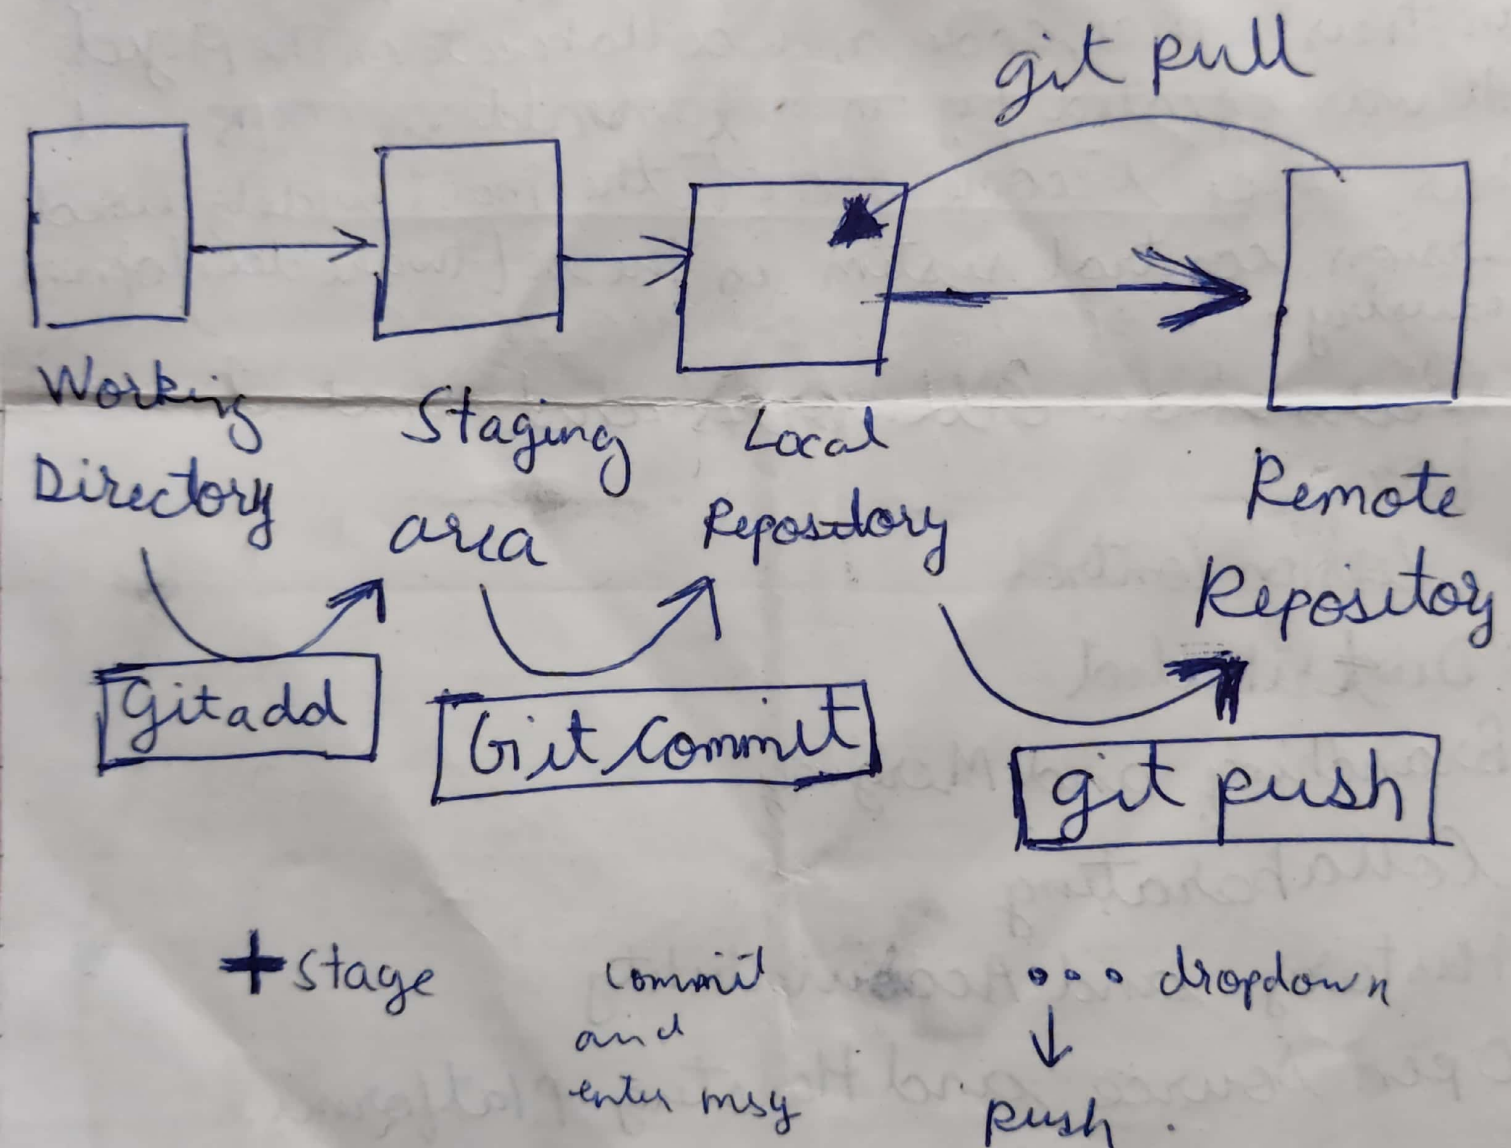 git pull
Working
Directory
Staging
area
Local
Repository
Remote
Repository
Git add
Git Commit
git push
+ Stage
Commit
and
enter msg
... dropdown
↓
push.